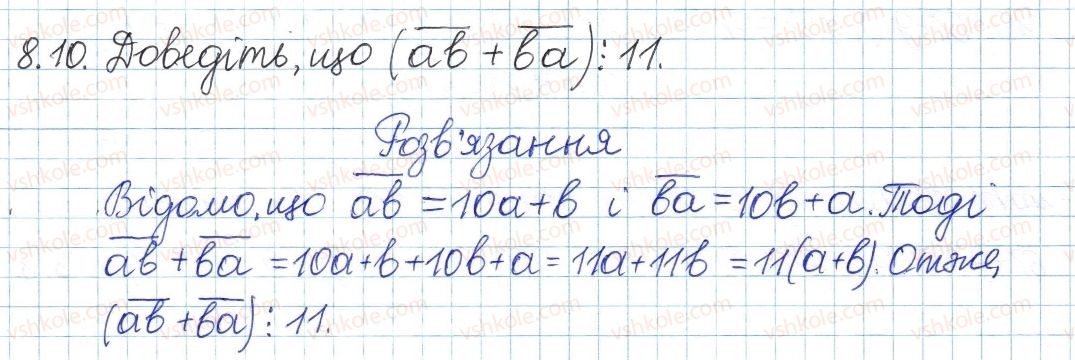 8.10. Доведіть, що (a̅b̅ + b̅a̅) ⋮ 11.
Розв'язання
Відомо, що a̅b̅ = 10a + b і b̅a̅ = 10b + a. Тоді
a̅b̅ + b̅a̅ = 10a + b + 10b + a = 11a + 11b = 11(a + b). Отже,
(a̅b̅ + b̅a̅) ⋮ 11.